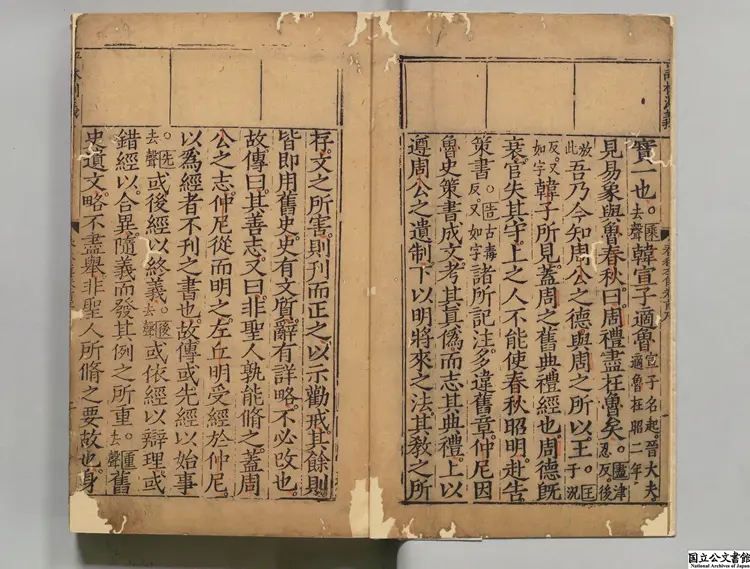 實一也。乘去聲韓宣子適魯宣子名起。晉大夫。適魯在昭二年。
見易象與魯春秋曰。周禮盡在魯矣。盡津忍反。後
放此吾乃今知周公之德與周之所以王。王于況
反。又如字韓子所見蓋周之舊典禮經也。周德旣
衰。官失其守。上之人不能使春秋昭明。赴告。
策書。告古毒反。又如字諸所記注。多違舊章。仲尼因
魯史策書成文。考其眞僞。而志其典禮。上以
遵周公之遺制。下以明將來之法。其敎之所
存。文之所害。則刊而正之。以示勸戒。其餘則
皆即用舊史。史有文質。辭有詳略。不必改也。
故傳曰。其善志。又曰。非聖人孰能脩之。蓋周
公之志。仲尼從而明之。左丘明受經於仲尼。
以為經者不刊之書也。故傳或先經以始事
。先去聲或後經以終義。後去聲或依經以辯理。或
錯經以合異。隨義而發。其例之所重。重去聲舊
史遺文。略不盡舉。非聖人所脩之要故也。身
国立公文書館
National Archives of Japan